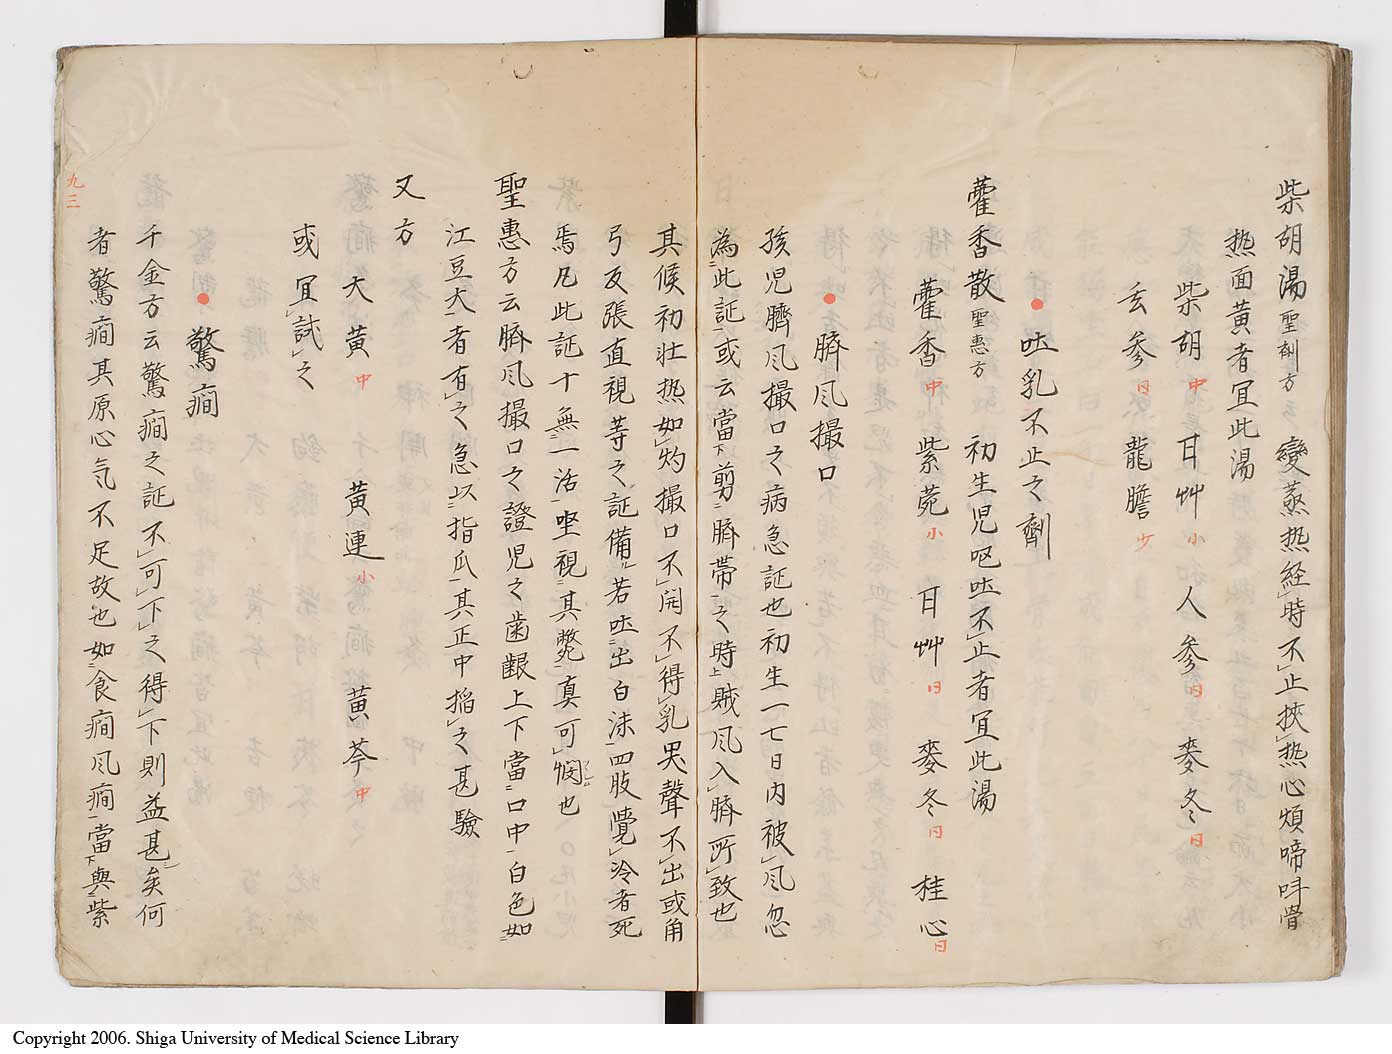 柴胡湯聖剤方云 變蒸热経時不止挾热心煩啼呌骨
热面黄者宜此湯
柴胡中 甘艸小 人参日 麥冬日
玄参日 龍膽少
吐乳不止之劑
藿香散聖惠方 初生児呕吐不止者宜此湯
藿香中 紫菀小 甘艸日 麥冬日 桂心日
臍风撮口
孩児臍风撮口之病急証也初生一七日内被风忽
為此証或云當下剪臍帯之時上賊风入臍所致也
其候初壮热如灼撮口不開不得乳哭聲不出或角
弓反張直視等之証備若吐出白沫四肢覺冷者死
焉凡此証十無一活坐視其斃真可憫也
聖惠方云臍风撮口之證児之歯齦上下當口中白色如
江豆大者有之急以指爪其正中搯之甚驗
又方
大黄中 黄連小 黄芩中
或宜試之
驚癇
千金方云驚癇之証不可下之得下則益甚矣何
者驚癇其原心気不足故也如食癇风癇當下與紫
九三
Copyright 2006. Shiga University of Medical Science Library